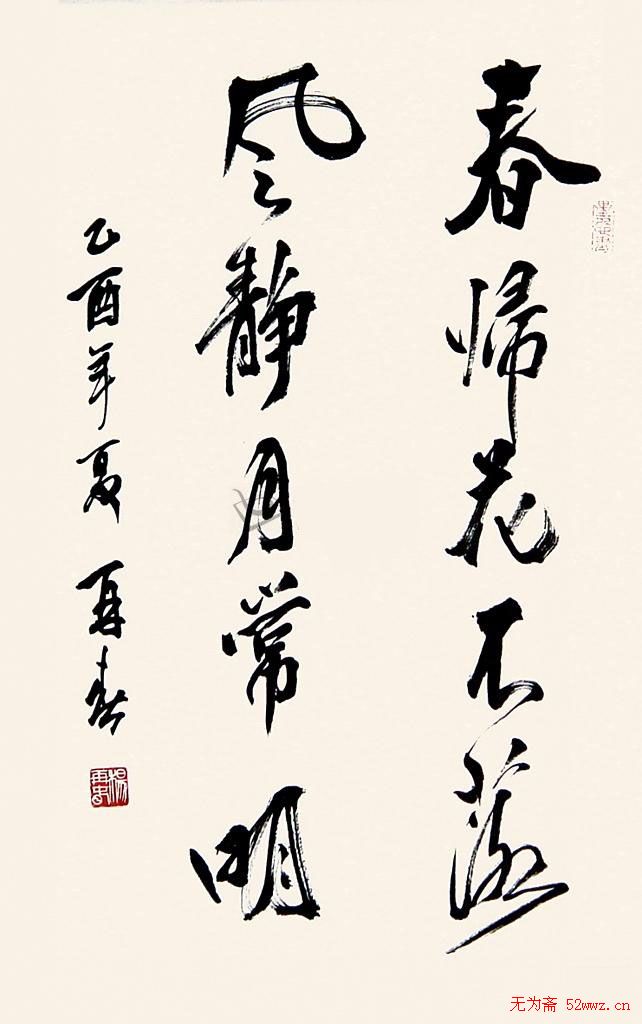 春帰花不落
風静月常明
乙酉年夏 再春
楊再春
无为斋 52wwz.cn